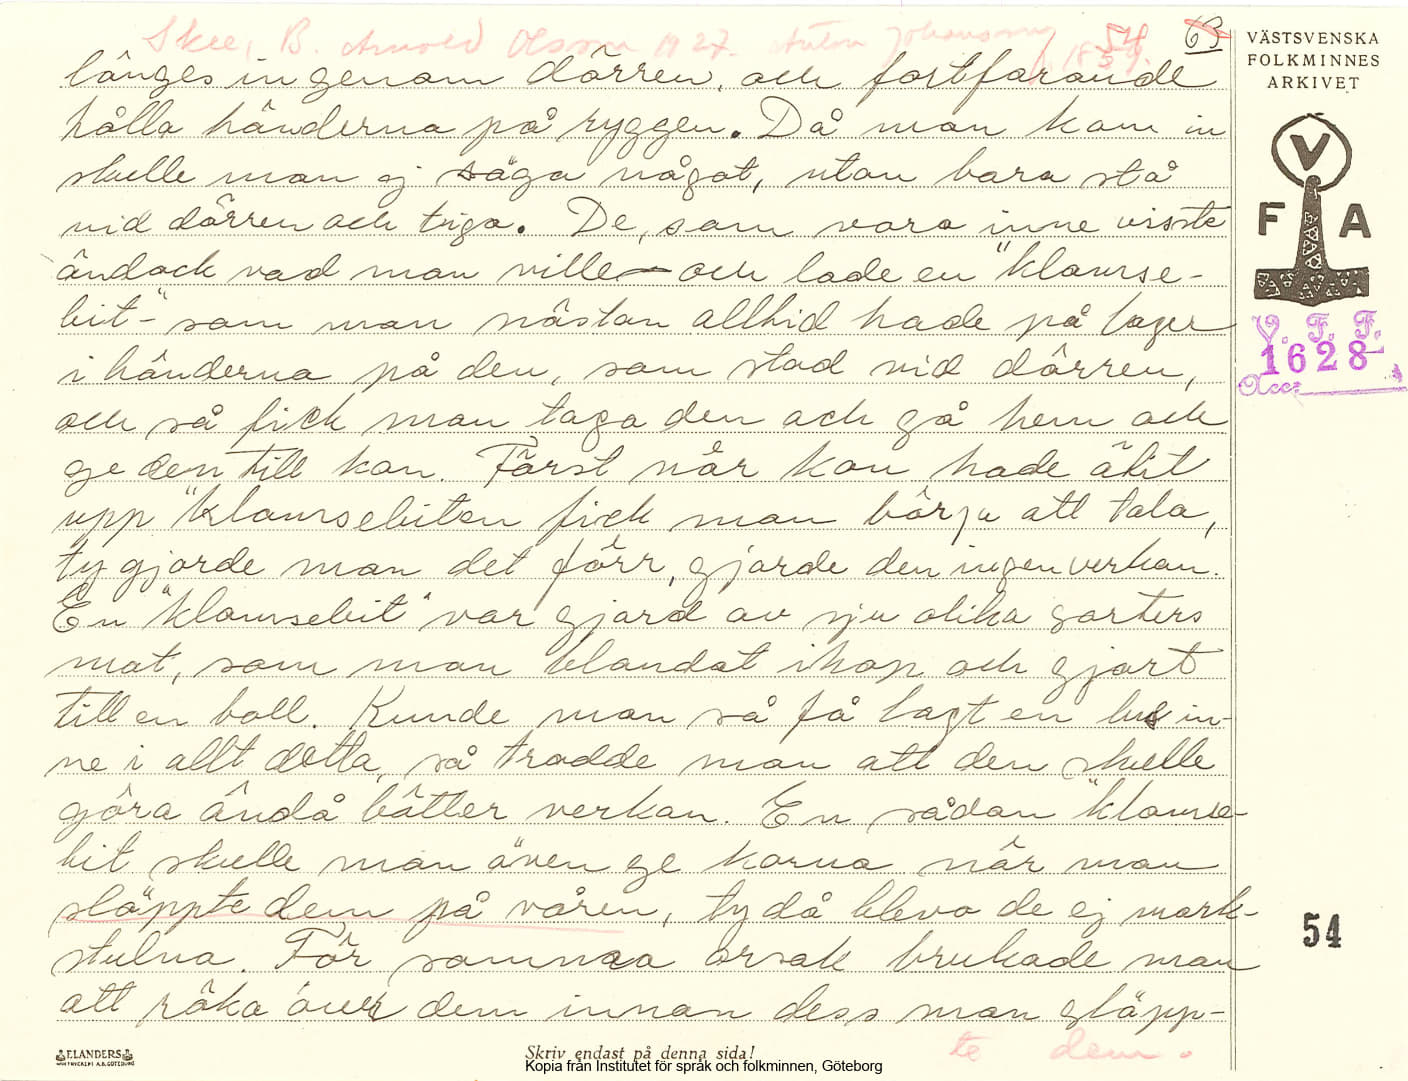 Skee, B. Arnold Olsson 1927. Anton Johansson, f. 1859.
54
63
länges in genom dörren, och fortfarande
hålla händerna på ryggen. Då man kom in
skulle man ej säga något, utan bara stå
vid dörren och tiga. De, som voro inne visste
ändock vad man ville och lade en "klamse-
bit"- som man nästan alltid hade på lager
i händerna på den, som stod vid dörren,
och så fick man taga den och gå hem och
ge den till kon. Först når kon hade ätit
upp "klamsebiten fick man börja att tala,
ty gjorde man det förr, gjorde den ingen verkan.
En "klamsebit" var gjord av sju olika sorters
mat, som man blandat ihop och gjort
till en boll. Kunde man så få lagt en lus in-
ne i allt detta, så trodde man att den skulle
göra ändå bätter verkan. En sådan "klamse-
bit skulle man även ge korna når man
släppte dem på våren, ty då blevo de ej mark-
stulna. För samma orsak brukade man
att röka över dem innan dess man släpp-
te dem.
VÄSTSVENSKA
FOLKMINNES
ARKIVET
V
F A
V. F. F.
1628
Acc:
54
ELANDERS
Skriv endast på denna sida!
Kopia från Institutet för språk och folkminnen, Göteborg